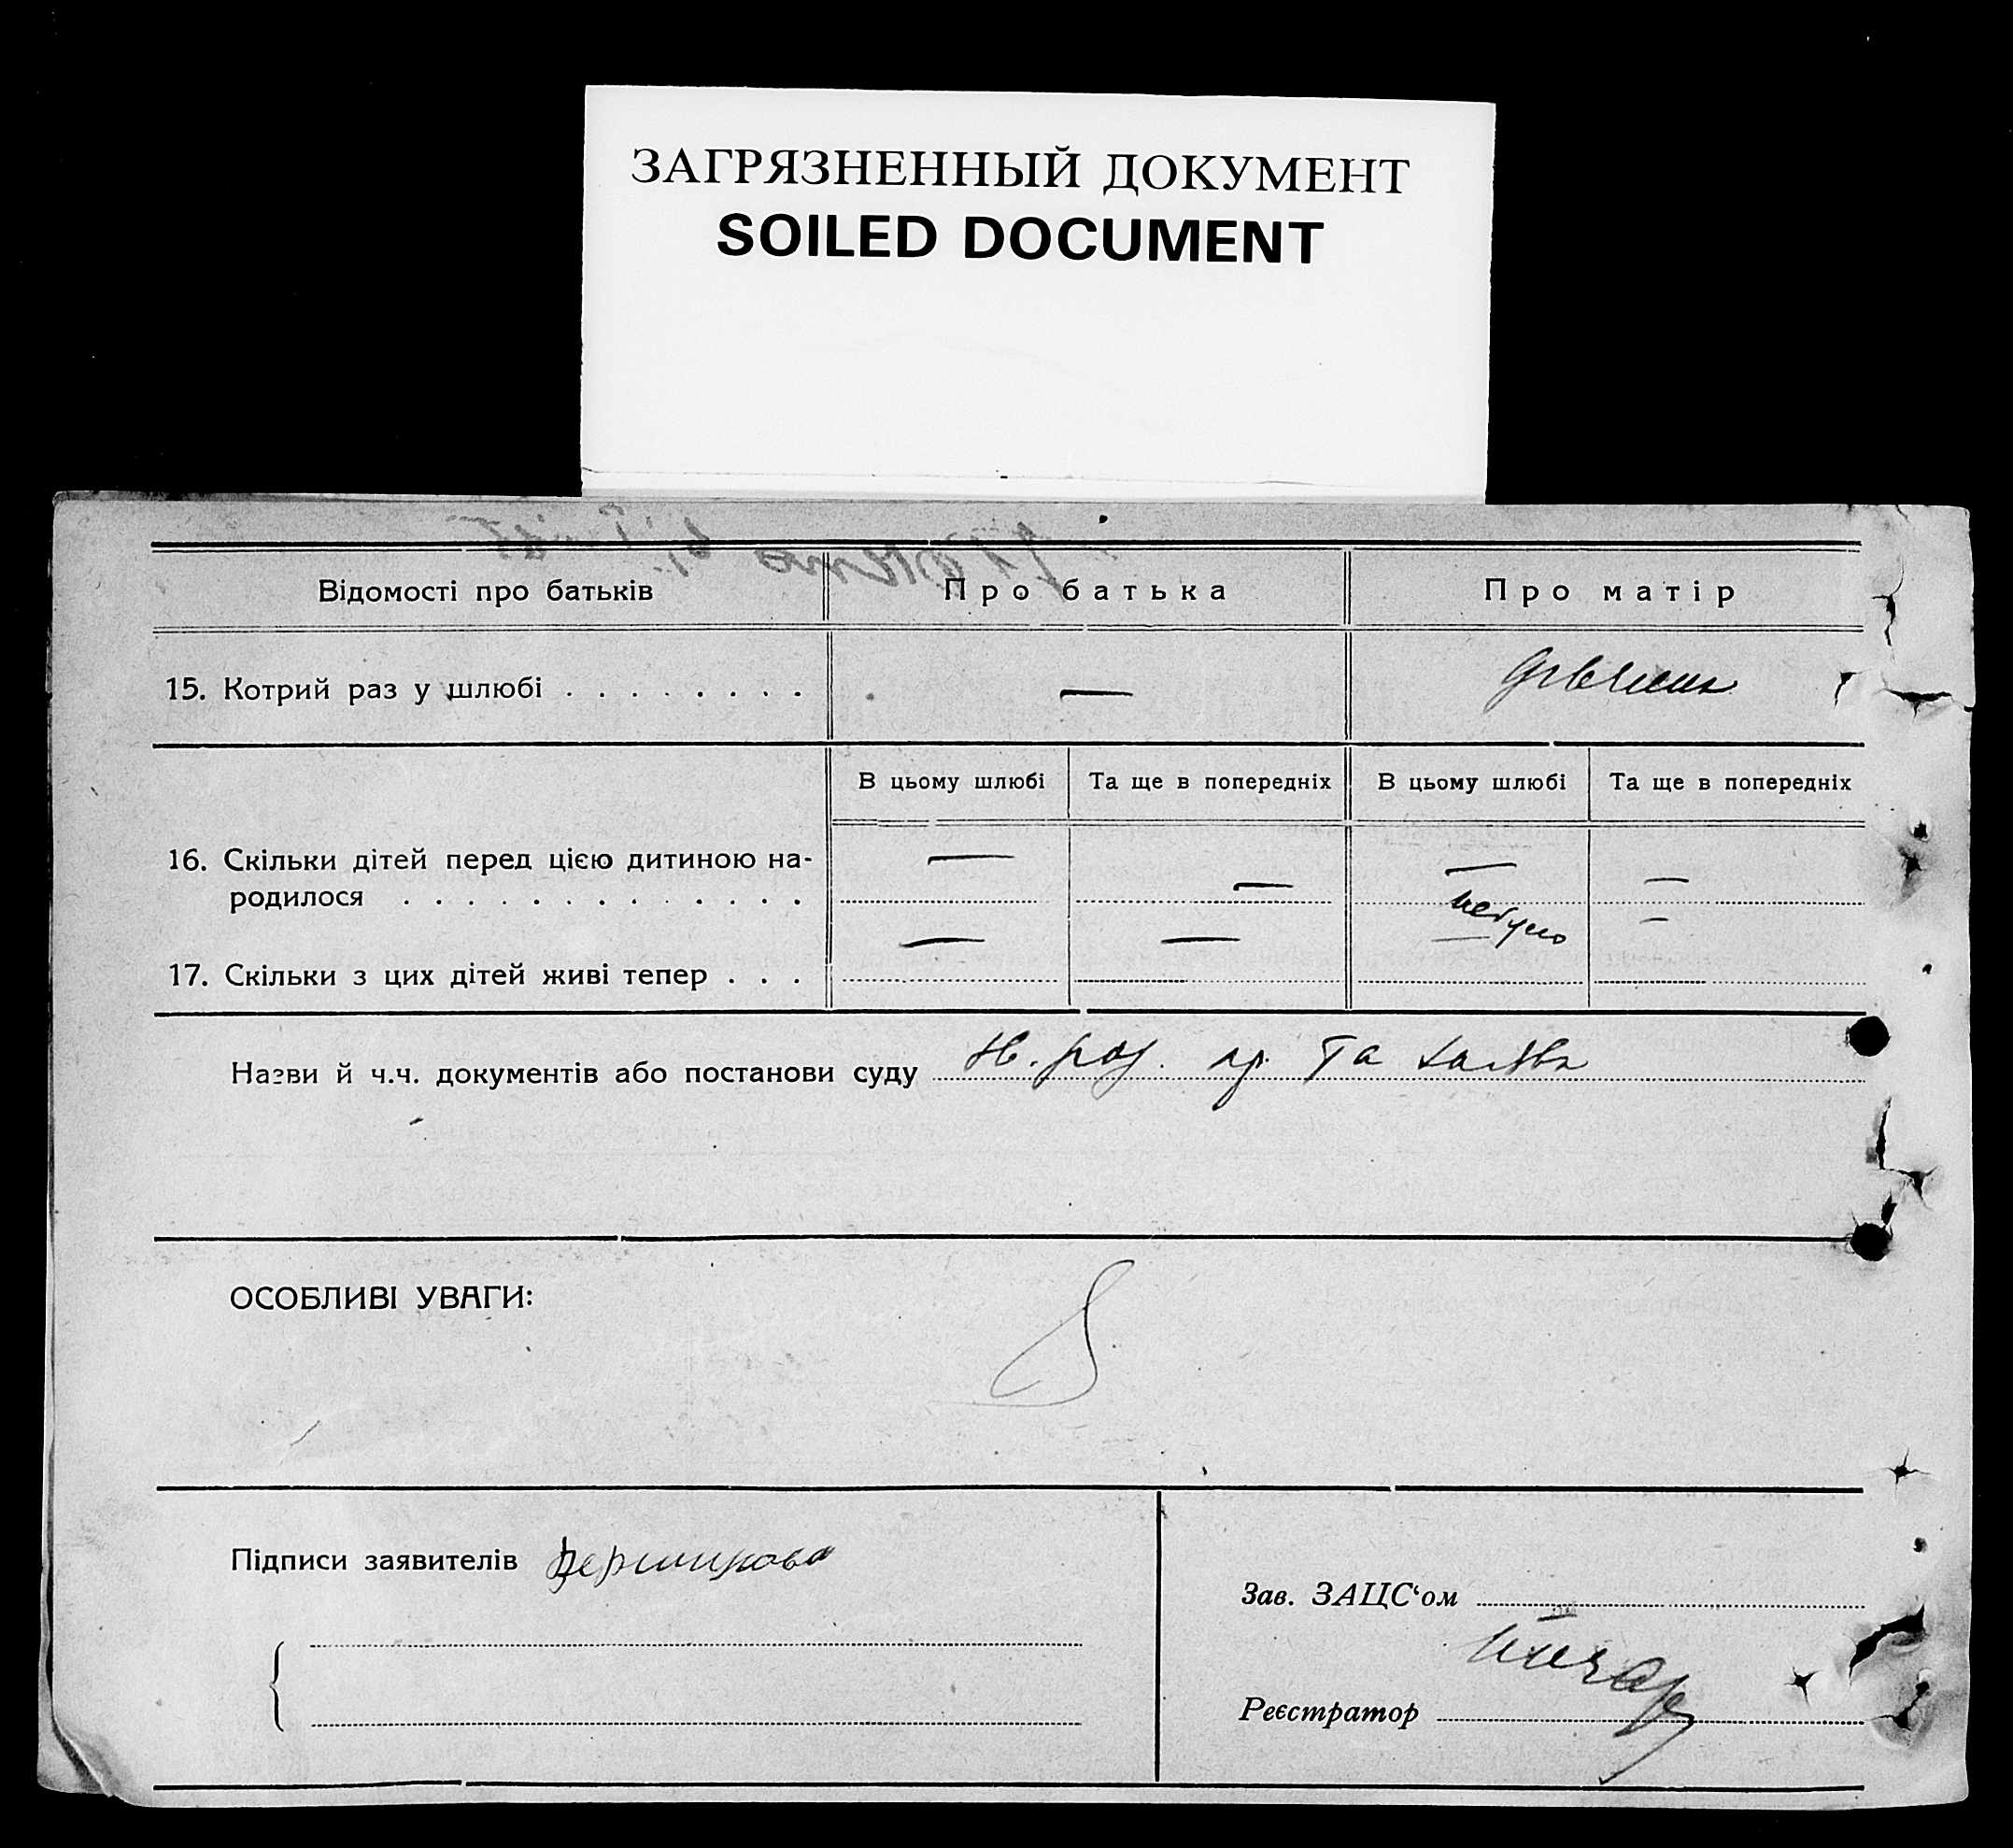 ЗАГРЯЗНЕННЫЙ ДОКУМЕНТ
SOILED DOCUMENT
Відомості про батьків Про батька Про матір
15. Котрий раз у шлюбі . . . . . . . . —
В цьому шлюбі Та ще в попередніх В цьому шлюбі Та ще в попередніх
16. Скільки дітей перед цією дитиною на-
родилося . . . . . . . . . . . . . — — — —
небуло
17. Скільки з цих дітей живі тепер . . . — — — —
Назви й ч.ч. документів або постанови суду та
ОСОБЛИВІ УВАГИ:
Підписи заявителів
Зав. ЗАЦС‘ом
Реєстратор